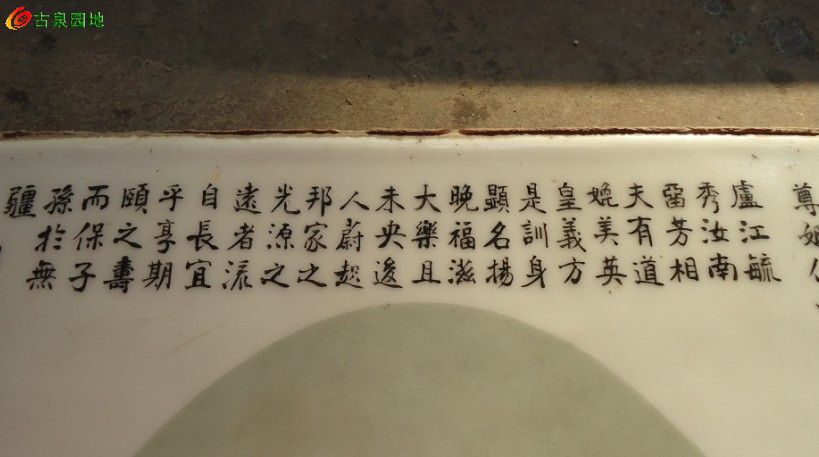 古泉园地
尊姻
盧江毓
秀汝南
芳相
夫有道
媲美英
皇義方
是訓身
顯名揚
晚福滋
大樂且
未央逡
人蔚起
邦家之
光源之
遠者流
自長宜
乎享期
頤之壽
而保子
孫於無
疆